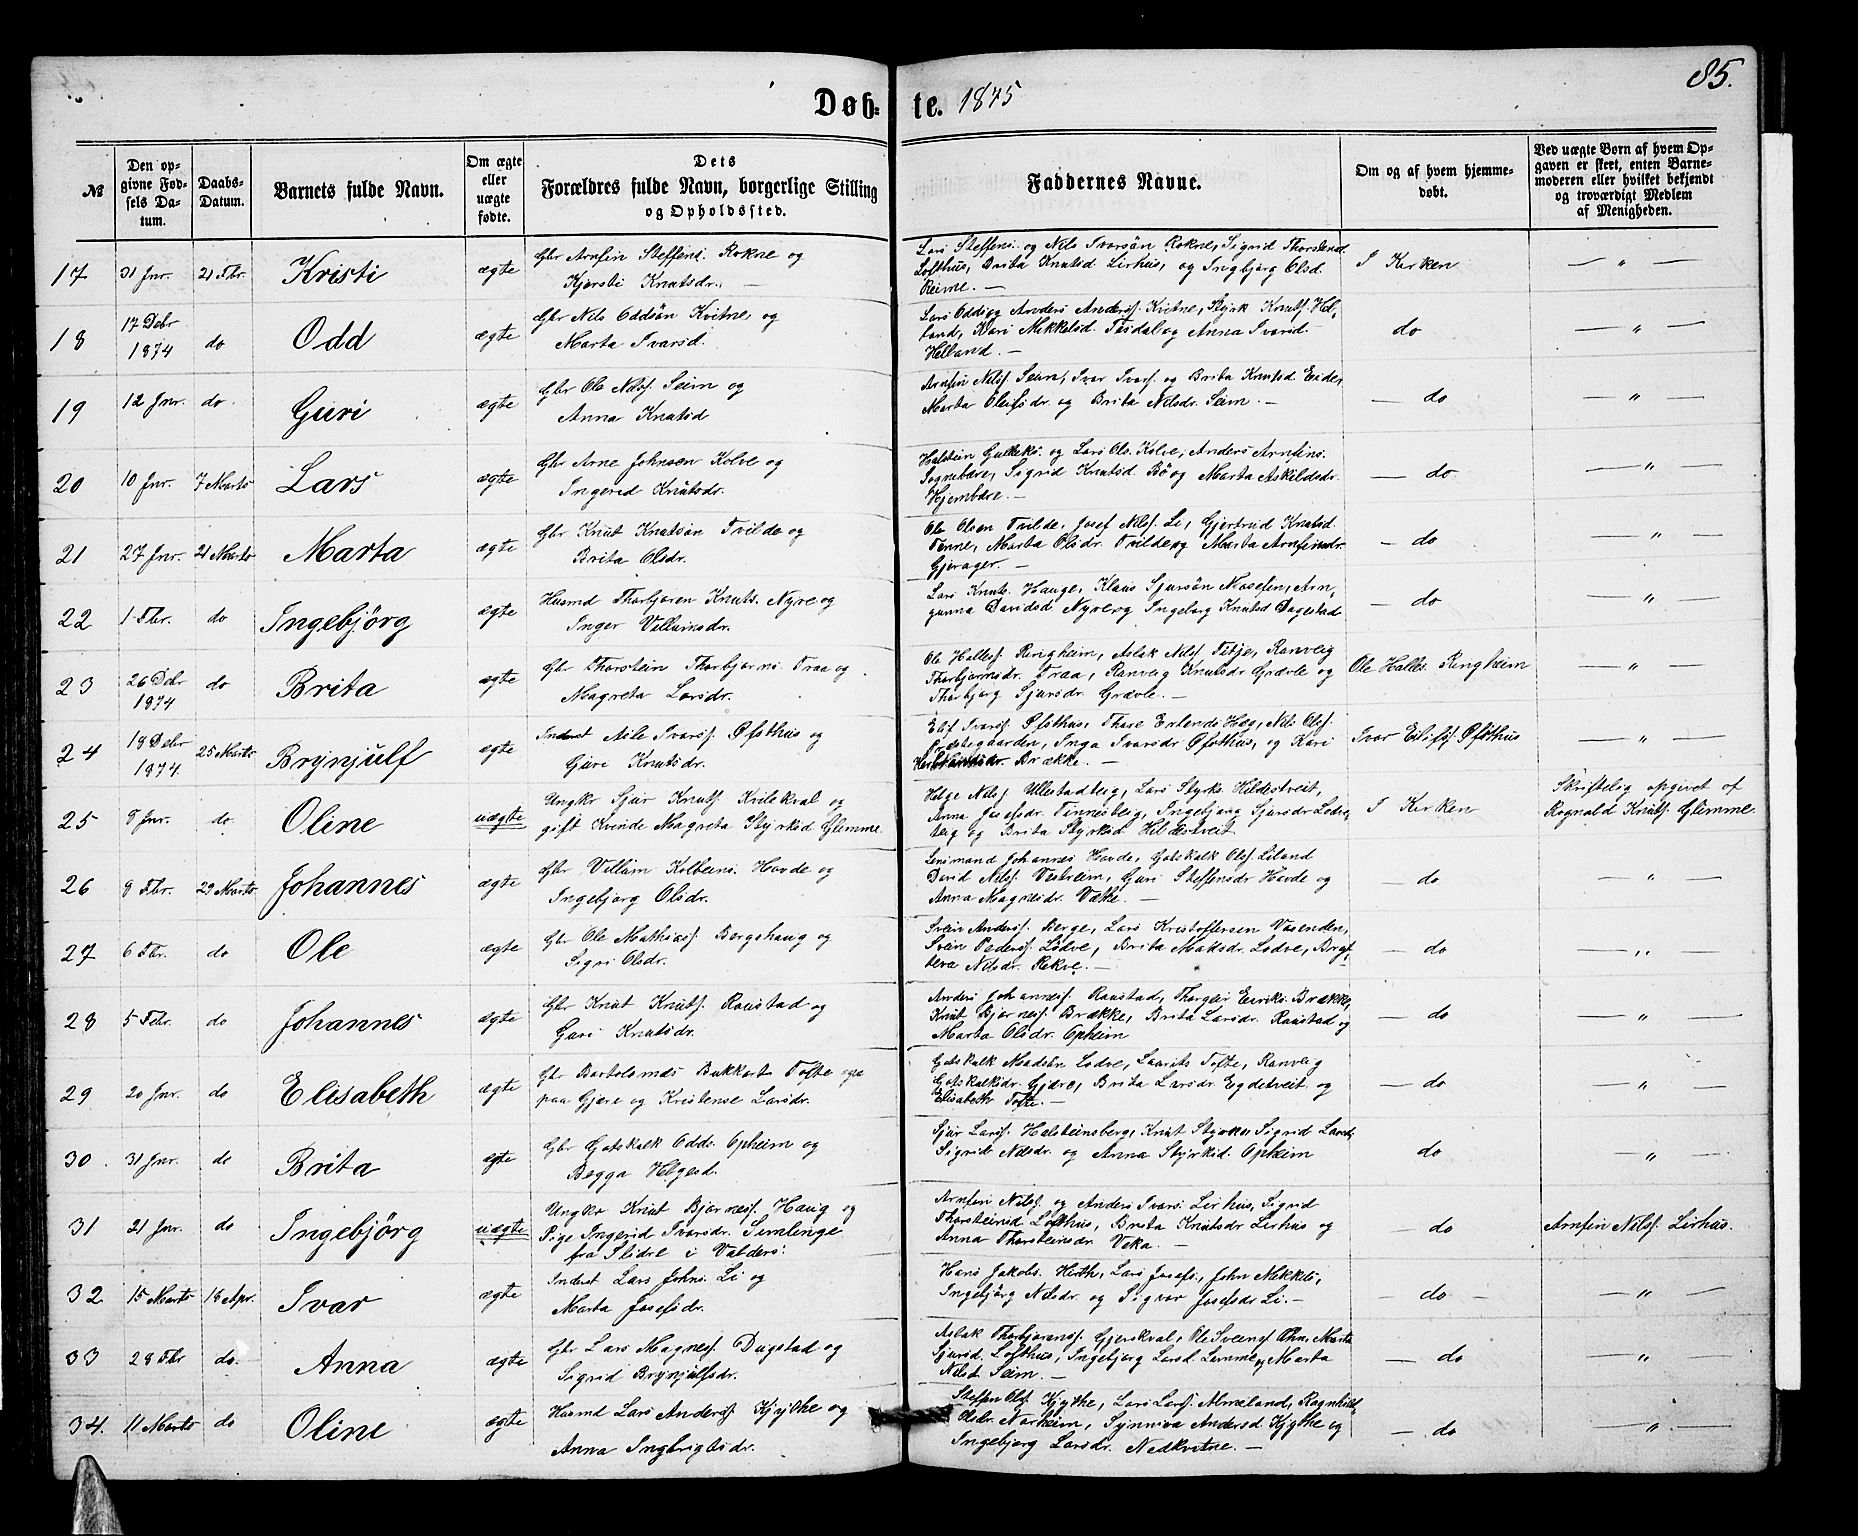 85.
Døb= te. 1875
№
Den op-
givne Fød-
sels Da-
tum.
Daabs-
Datum.
Barnets fulde Navn.
Om ægte
eller
uægte
fødte.
Dets
Forældres fulde Navn, borgerlige Stilling
og Opholdssted.
Faddernes Navne.
Om og af hvem hjemme-
døbt.
Ved uægte Børn af hvem Op-
gaven er skeet, enten Barne-
moderen eller hvilket bekjendt
og troværdigt Medlem
af Menigheden.
17 31 Jnr. 21 Fbr. Kristi ægte Gbr Arnfin Steffens. Rokne og
Kjersti Knutsdr. —
Lars Steffens. og Nils Ivarsön Rokne, Sigrid Thorsteinsd.
Lofthus, Brita Knutsd Lirhus, og Ingbjørg Olsd.
Reime. —
I Kirken — " —
18 17 Debr
1874 do Odd ægte Gbr Nils Oddsön Kvitne, og
Marta Ivarsd.
Lars Odds og Anders Andersf. Kvitne, Styrk Knutf. Hel-
land, Kari Mikkelsd. og Anna Ivarsd
Helland. —
do — " —
19 12 Jnr. do. Guri ægte Gbr Ole Nilsf. Seim og
Anna Knutsd
Arnfin Nilsf. Seim, Ivar Ivarsf. og Brita Knutsd. Eide,
Marta Olefsdr. og Brita Nilsdr. Seim. —
— do — " —
20 10 Jnr. 7 Marts Lars ægte Gbr Arne Johnsen Kolve og
Ingerid Knutsdr.
Halstein Gulleiks. og Lars Ols. Kolve, Anders Arnfins.
Sognebære, Sigrid Knutsd. Bö og Marta Askildsdr.
— do — " —
21 27 Jnr. 21 Marts Marta ægte Gbr Knut Knutsön Tvilde og
Brita Olsdr.
Ole Olsen Tvilde, Josef Nilsf. Li, Gjertrud Knutsd.
Finne, Marta Olsdr. Tvilde og Marta Arnfinsdr.
Gjerager. —
— do — " —
22 1 Fbr. do Ingebjörg ægte Husmd Thorbjøren Knuts. Nyre og
Inger Villumsdr.
Lars Knuts. Hauge, Klaus Sjursön Mosefin, Arn-
gunna Davidsd Nyre og Ingeborg Knutsd Dagestad
— do — " —
23 26 Debr
1874 do Brita ægte Gbr Thorstein Thorbjørns. Traa og
Magreta Larsdr.
Ole Hallesf. Ringheim, Aslak Nilsf. Titje, Ranveig
Thorbjørnsdr. Traa, Ranveig Knutsdr Grævle og
Thorbjørg Sjursdr. Grævle. —
Ole Halles. Ringheim — " —
24 18 Debr
1874. 25 Marts Brynjulf ægte Inderst Nils Ivarsf. Øfsthus og
Guri Knutsdr.
Elif Ivarsf. Øfsthus, Thore Erlends Hæg, Nils Olsf.
Prestegaarden, Inga Ivarsdr Øfsthus, og Kari
Brække. —
Ivar Elifsf Øfsthus — " —
25 8 Jnr. do. Oline uægte Ungkr Sjur Knutf. Kvilekval og
gift Kvinde Magreta Styrksd Glimme.
Helge Nilsf. Ullestadteig, Lars Styrks. Hildestveit,
Anna Josefsdr. Finnesteig, Ingebjørg Sjursdr Lødve-
teig og Brita Styrksd Hildestveit
I Kirken Skriftelig opgivet af
Rognald Knutsf. Glimme.
26 8 Fbr. 29 Marts. Johannes ægte Gbr. Villum Kolbeins. Hovde og
Ingebjørg Olsdr.
Lensmand Johannes Hovde, Gotskalk Olsf. Liland
David Nilsf. Vestreim, Guri Steffensdr Hovde og
Anna Magnesdr. Væthe. —
— do — " —
27 6 Fbr. do Ole ægte Gbr Ole Mathiasf. Bergshaug og
Sigri Olsdr.
Svein Andersf. Berge, Lars Kristoffersen Vasenden,
Svein Pedersf. Lödve, Brita Matsdr. Lodve,
Nilsdr. Rekve. —
— do — " —
28 5 Febr. do Johannes ægte Gbr Knut Knutsf. Raustad og
Guri Knutsdr.
Anders Johannesf. Raustad, Thorgeir Eiriks. Brække,
Knut Bjørnesf. Brække, Brita Larsdr. Raustad og
Marta Olsdr. Opheim
— do — " —
29 20 Jnr. do Elisabeth ægte Gbr Bartolomæs Bukkarts Tofte
paa Gjære og Kristense Larsdr.
Gotskalk Madsön Lodve, Laurits Tofte, Ranveig
Gotskalksdr. Gjære, Brita Larsdr. Egdetveit og
Elisabeth Tofte. —
— do — " —
30. 31 Jnr. do Brita ægte Gbr Gotskalk Odds. Opheim og
Begga Helgesd.
Sjur Larsf. Halsteinsberg, Knut Styrks, Sigrid Larsd,
Sigrid Nilsdr. og Anna Styrksd. Opheim
do — " —
31 21 Jnr. do Ingebjörg uægte Ungkr Knut Bjørnesf. Haug og
Pige Ingerid Ivarsdr. Simlinge
fra Slidre i Valders.
Arnfin Nilsf. og Anders Ivars. Lirhus, Sigrid
Thorsteinsd Lofthus, Brita Knutsdr Lirhus og
Anna Thorsteinsdr. Veka. —
— do Arnfin Nilsf. Lirhus.
32 15 Marts 18 Apr. Ivar ægte Inderst Lars Johns. Li og
Marta Josefsdr.
Hans Jakobs. Hirth, Lars Josefs., John Mikkls,
Ingebjörg Nilsdr og Sigvor Josefsdr Li. —
— do — — " —
33 28 Fbr do. Anna ægte Gbr Lars Magnesf. Dugstad og
Sigrid Brynjulfsdr.
Aslak Thorbjørnsf. Gjerskval, Ole Sveinsf. Marta
Sjursd. Lofthus, Ingebjørg Larsd. Lemme og Marta
Nilsd Seim. —
— do — " —
34. 11 Marts do Oline ægte Husmd Lars Andersf. Kjythe og
Anna Ingbrigtsdr.
Steffen Olsf. Kjythe, Lars Larsf. Almeland, Ragnhild
Olsdr. Norheim, Synniva Andersd. Kjythe og
Ingebjørg Larsdr. Nedkvitne. —
— do — " —